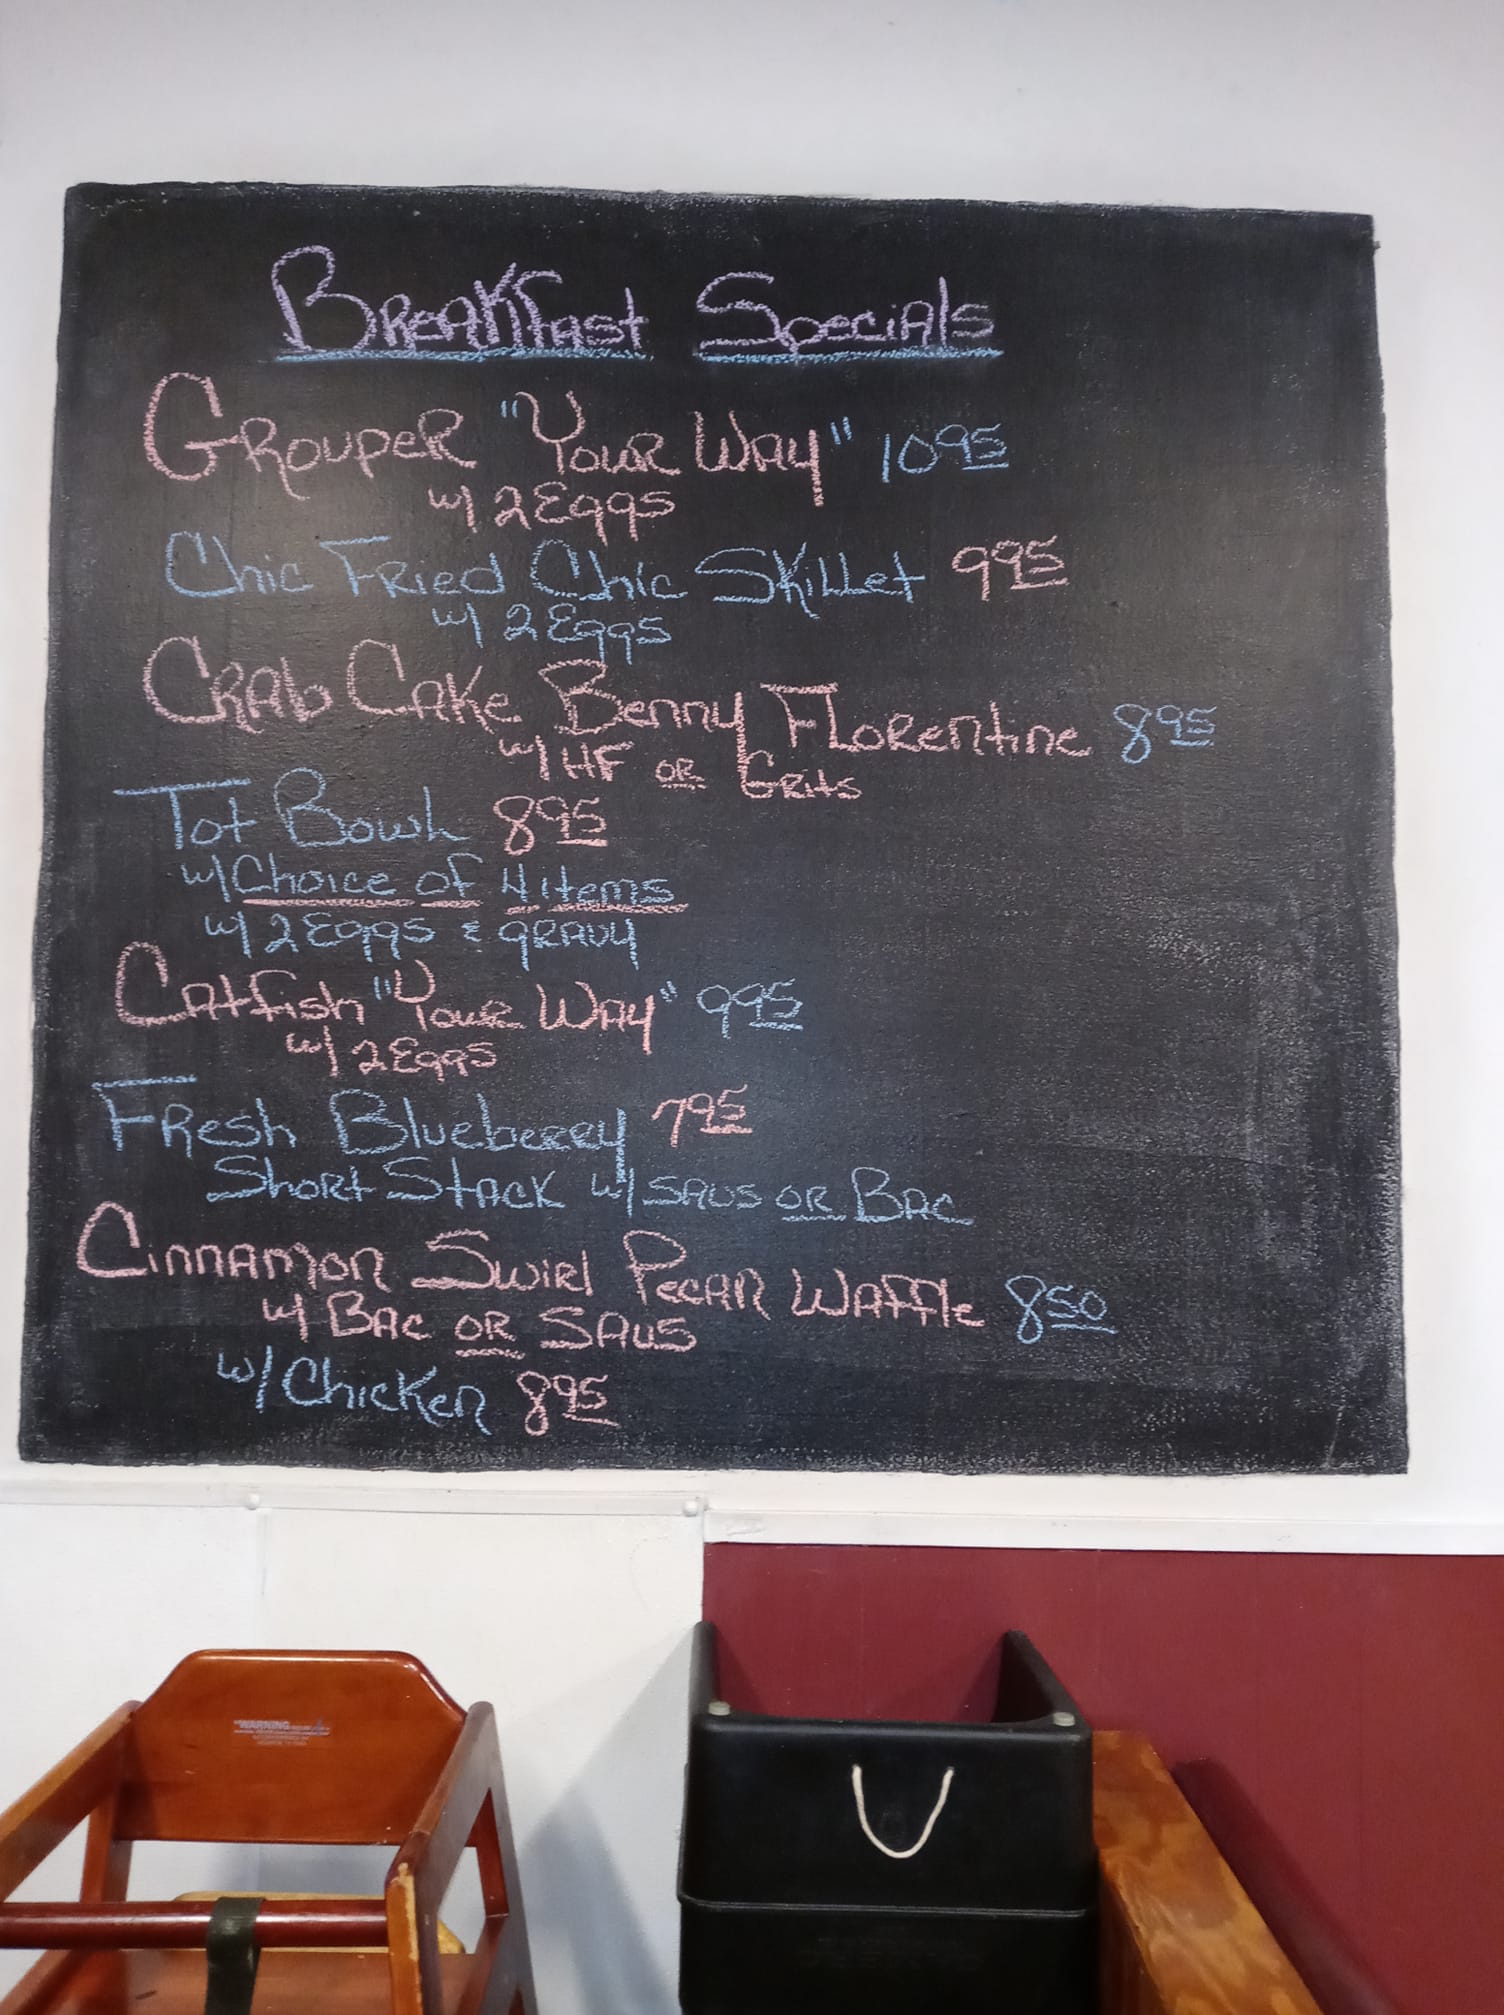 Breakfast Specials
Grouper "Your Way" 10 95
w/ 2 Eggs
Chic Fried Chic Skillet 9 95
w/ 2 Eggs
Crab Cake Benny Florentine 8 95
w/ HF or Grits
Tot Bowl 8 95
w/ Choice of 4 items
w/ 2 Eggs & gravy
Catfish "Your Way" 9 95
w/ 2 Eggs
Fresh Blueberry 7 95
Short Stack w/ saus or Bac
Cinnamon Swirl Pecan Waffle 8 50
w/ Bac or Saus
w/ Chicken 8 95
WARNING